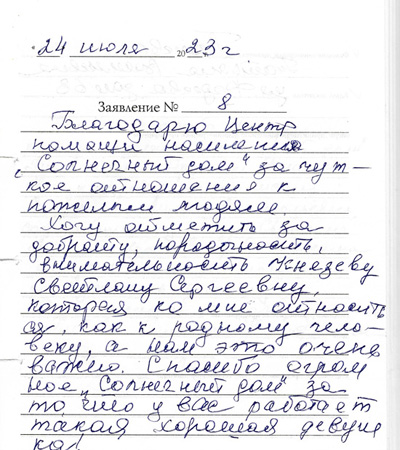 24 июля 2023 г
Заявление № 8
Благодарю Центр
помощи населению
„Солнечный дом" за чут-
кое отношения к
пожилым людям.
Хочу отметить за
доброту, порядочность,
внимательность Князеву
Светлану Сергеевну,
которая ко мне относить
ся, как к родному чело-
веку, а нам это очень
важно. Спасибо огром
ное „Солнечный дом" за
то что у вас работает
такая хорошая девуш
ка!